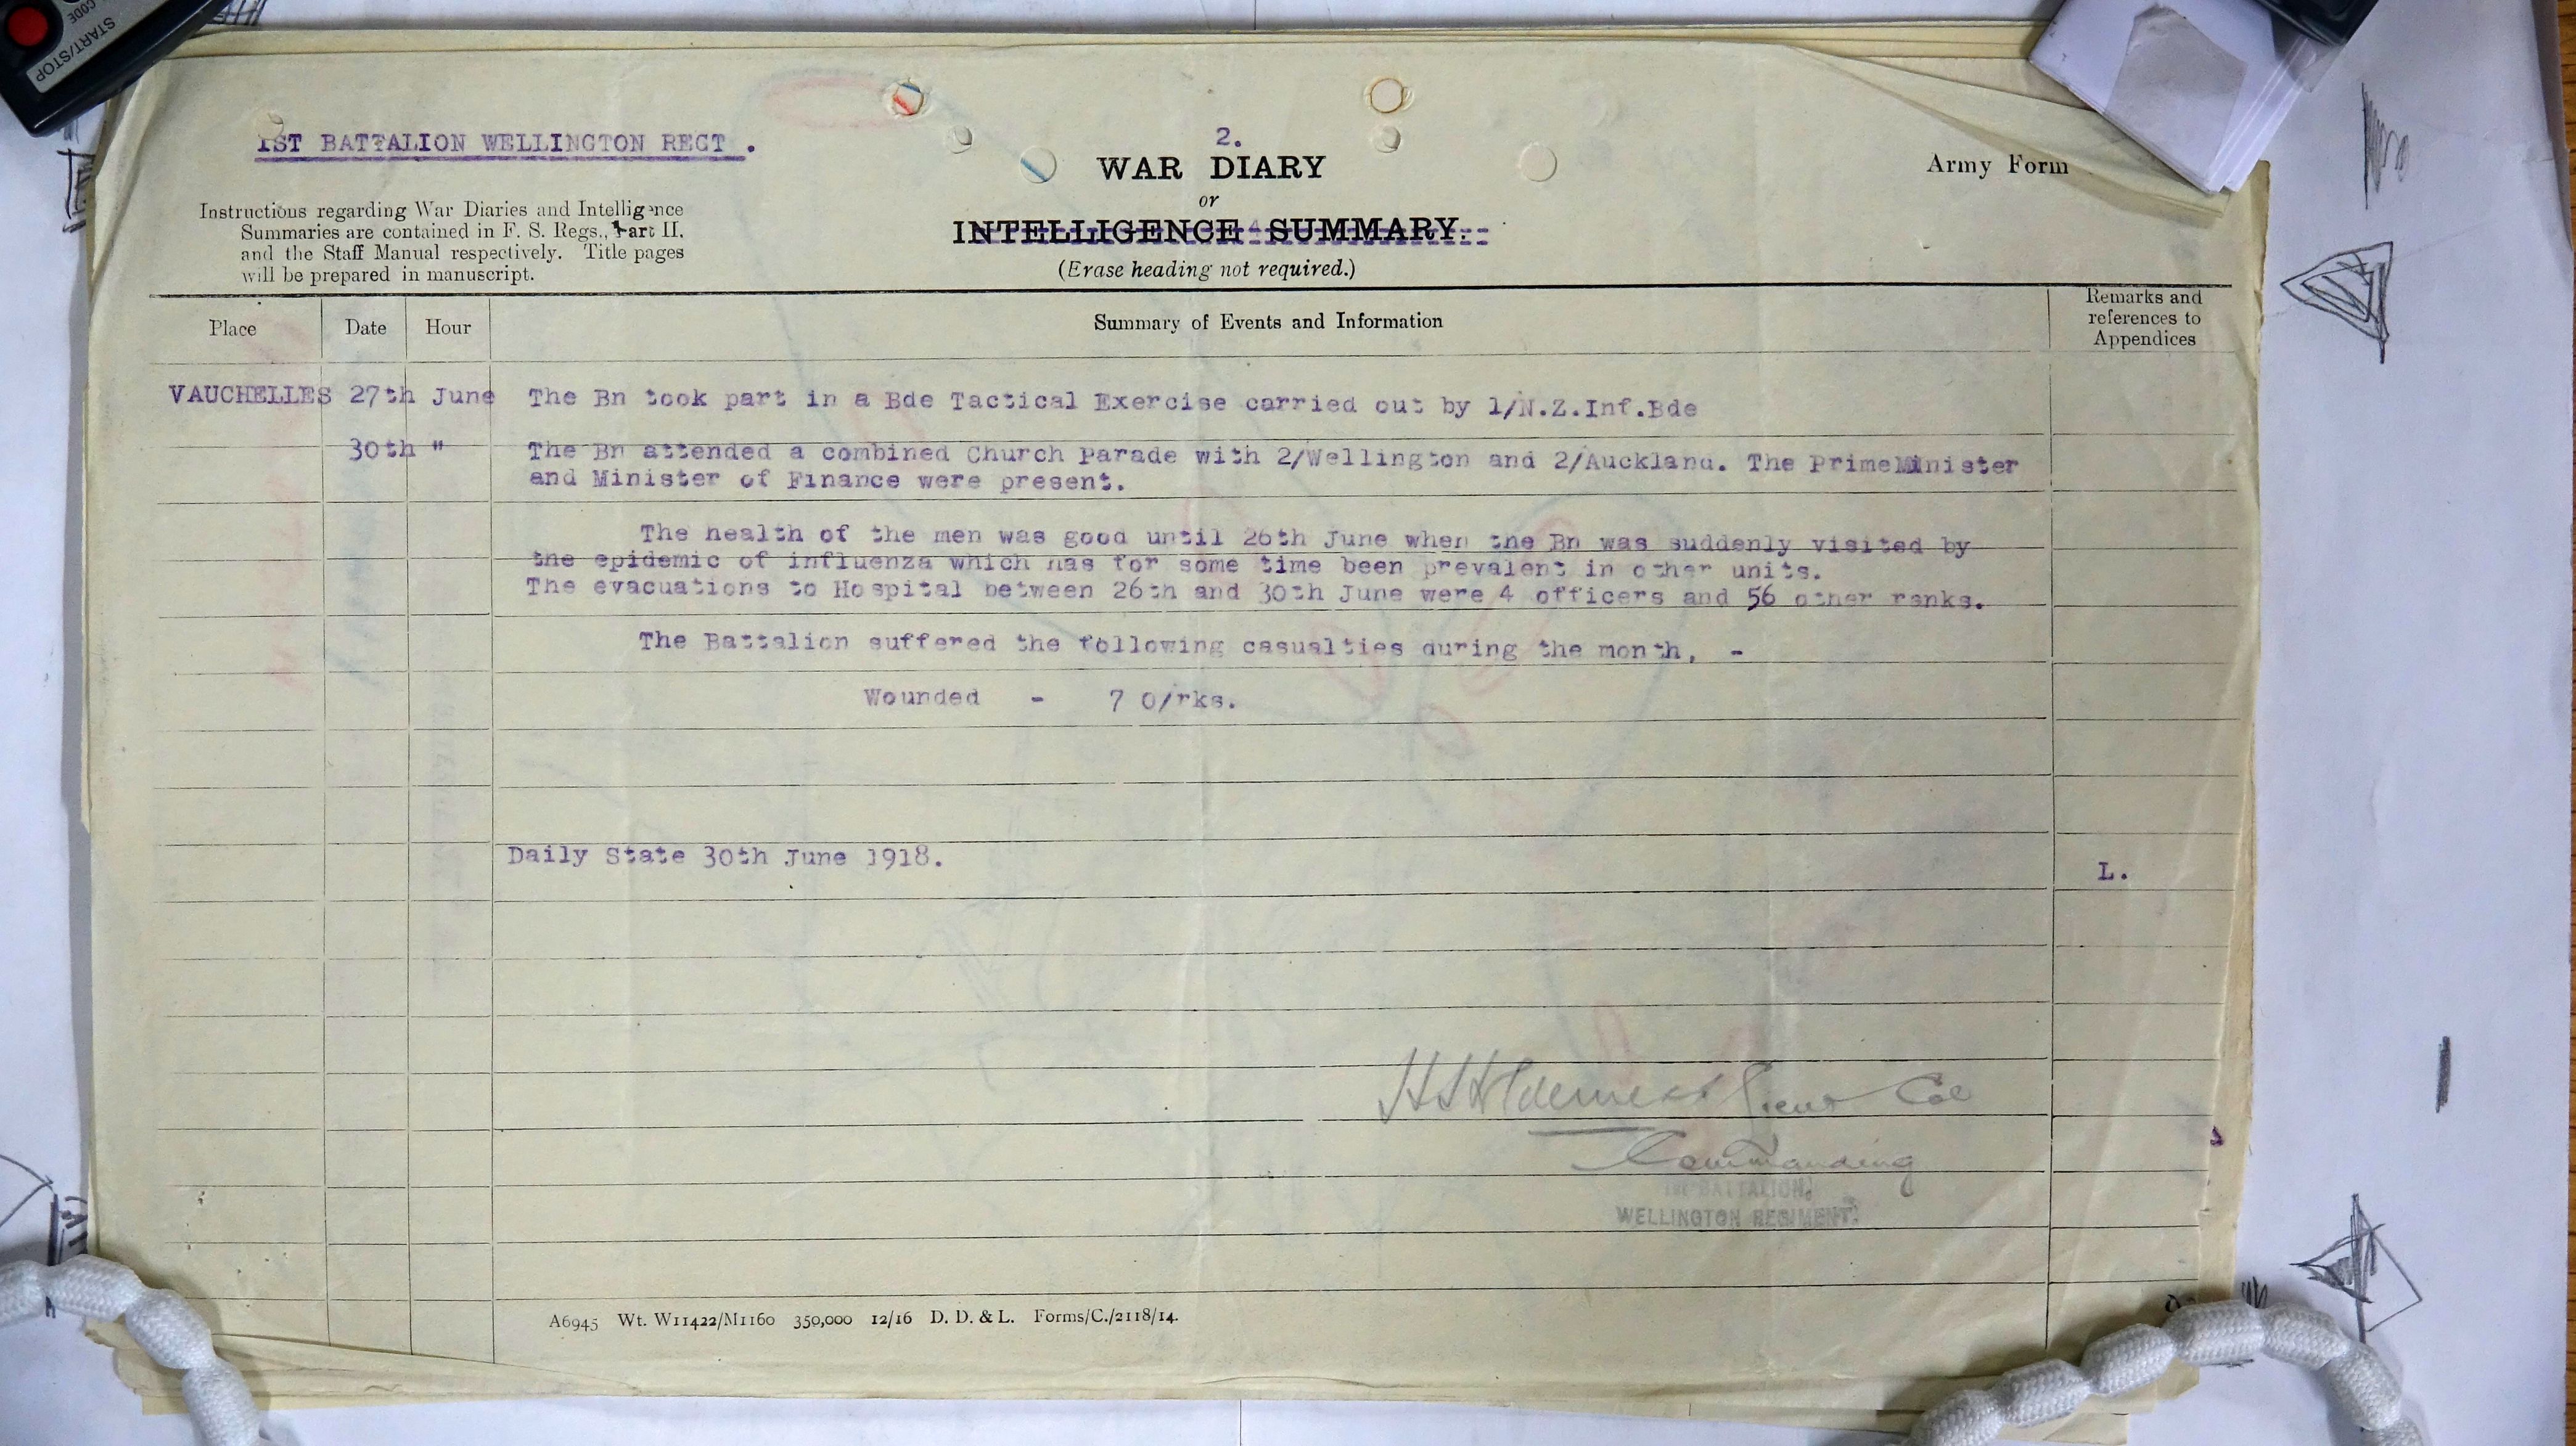 START/STOP
CODE
1ST BATTALION WELLINGTON REGT .
2.
WAR DIARY
or
INTELLIGENCE SUMMARY.
(Erase heading not required.)
Army Form
Instructions regarding War Diaries and Intelligence
Summaries are contained in F. S. Regs., Part II.
and the Staff Manual respectively. Title pages
will be prepared in manuscript.
Place Date Hour Summary of Events and Information Remarks and
references to
Appendices
VAUCHELLES 27th June The Bn took part in a Bde Tactical Exercise carried out by 1/N.Z.Inf.Bde
30th " The Bn attended a combined Church Parade with 2/Wellington and 2/Auckland. The Prime Minister
and Minister of Finance were present.
The health of the men was good until 26th June when the Bn was suddenly visited by
the epidemic of influenza which has for some time been prevalent in other units.
The evacuations to Hospital between 26th and 30th June were 4 officers and 56 other ranks.
The Battalion suffered the following casualties during the month, -
Wounded - 7 O/rks.
Daily State 30th June 1918. L.
Lieut Col
Commanding
1st BATTALION,
WELLINGTON REGIMENT.
A6945 Wt. W11422/M1160 350,000 12/16 D. D. & L. Forms/C./2118/14.